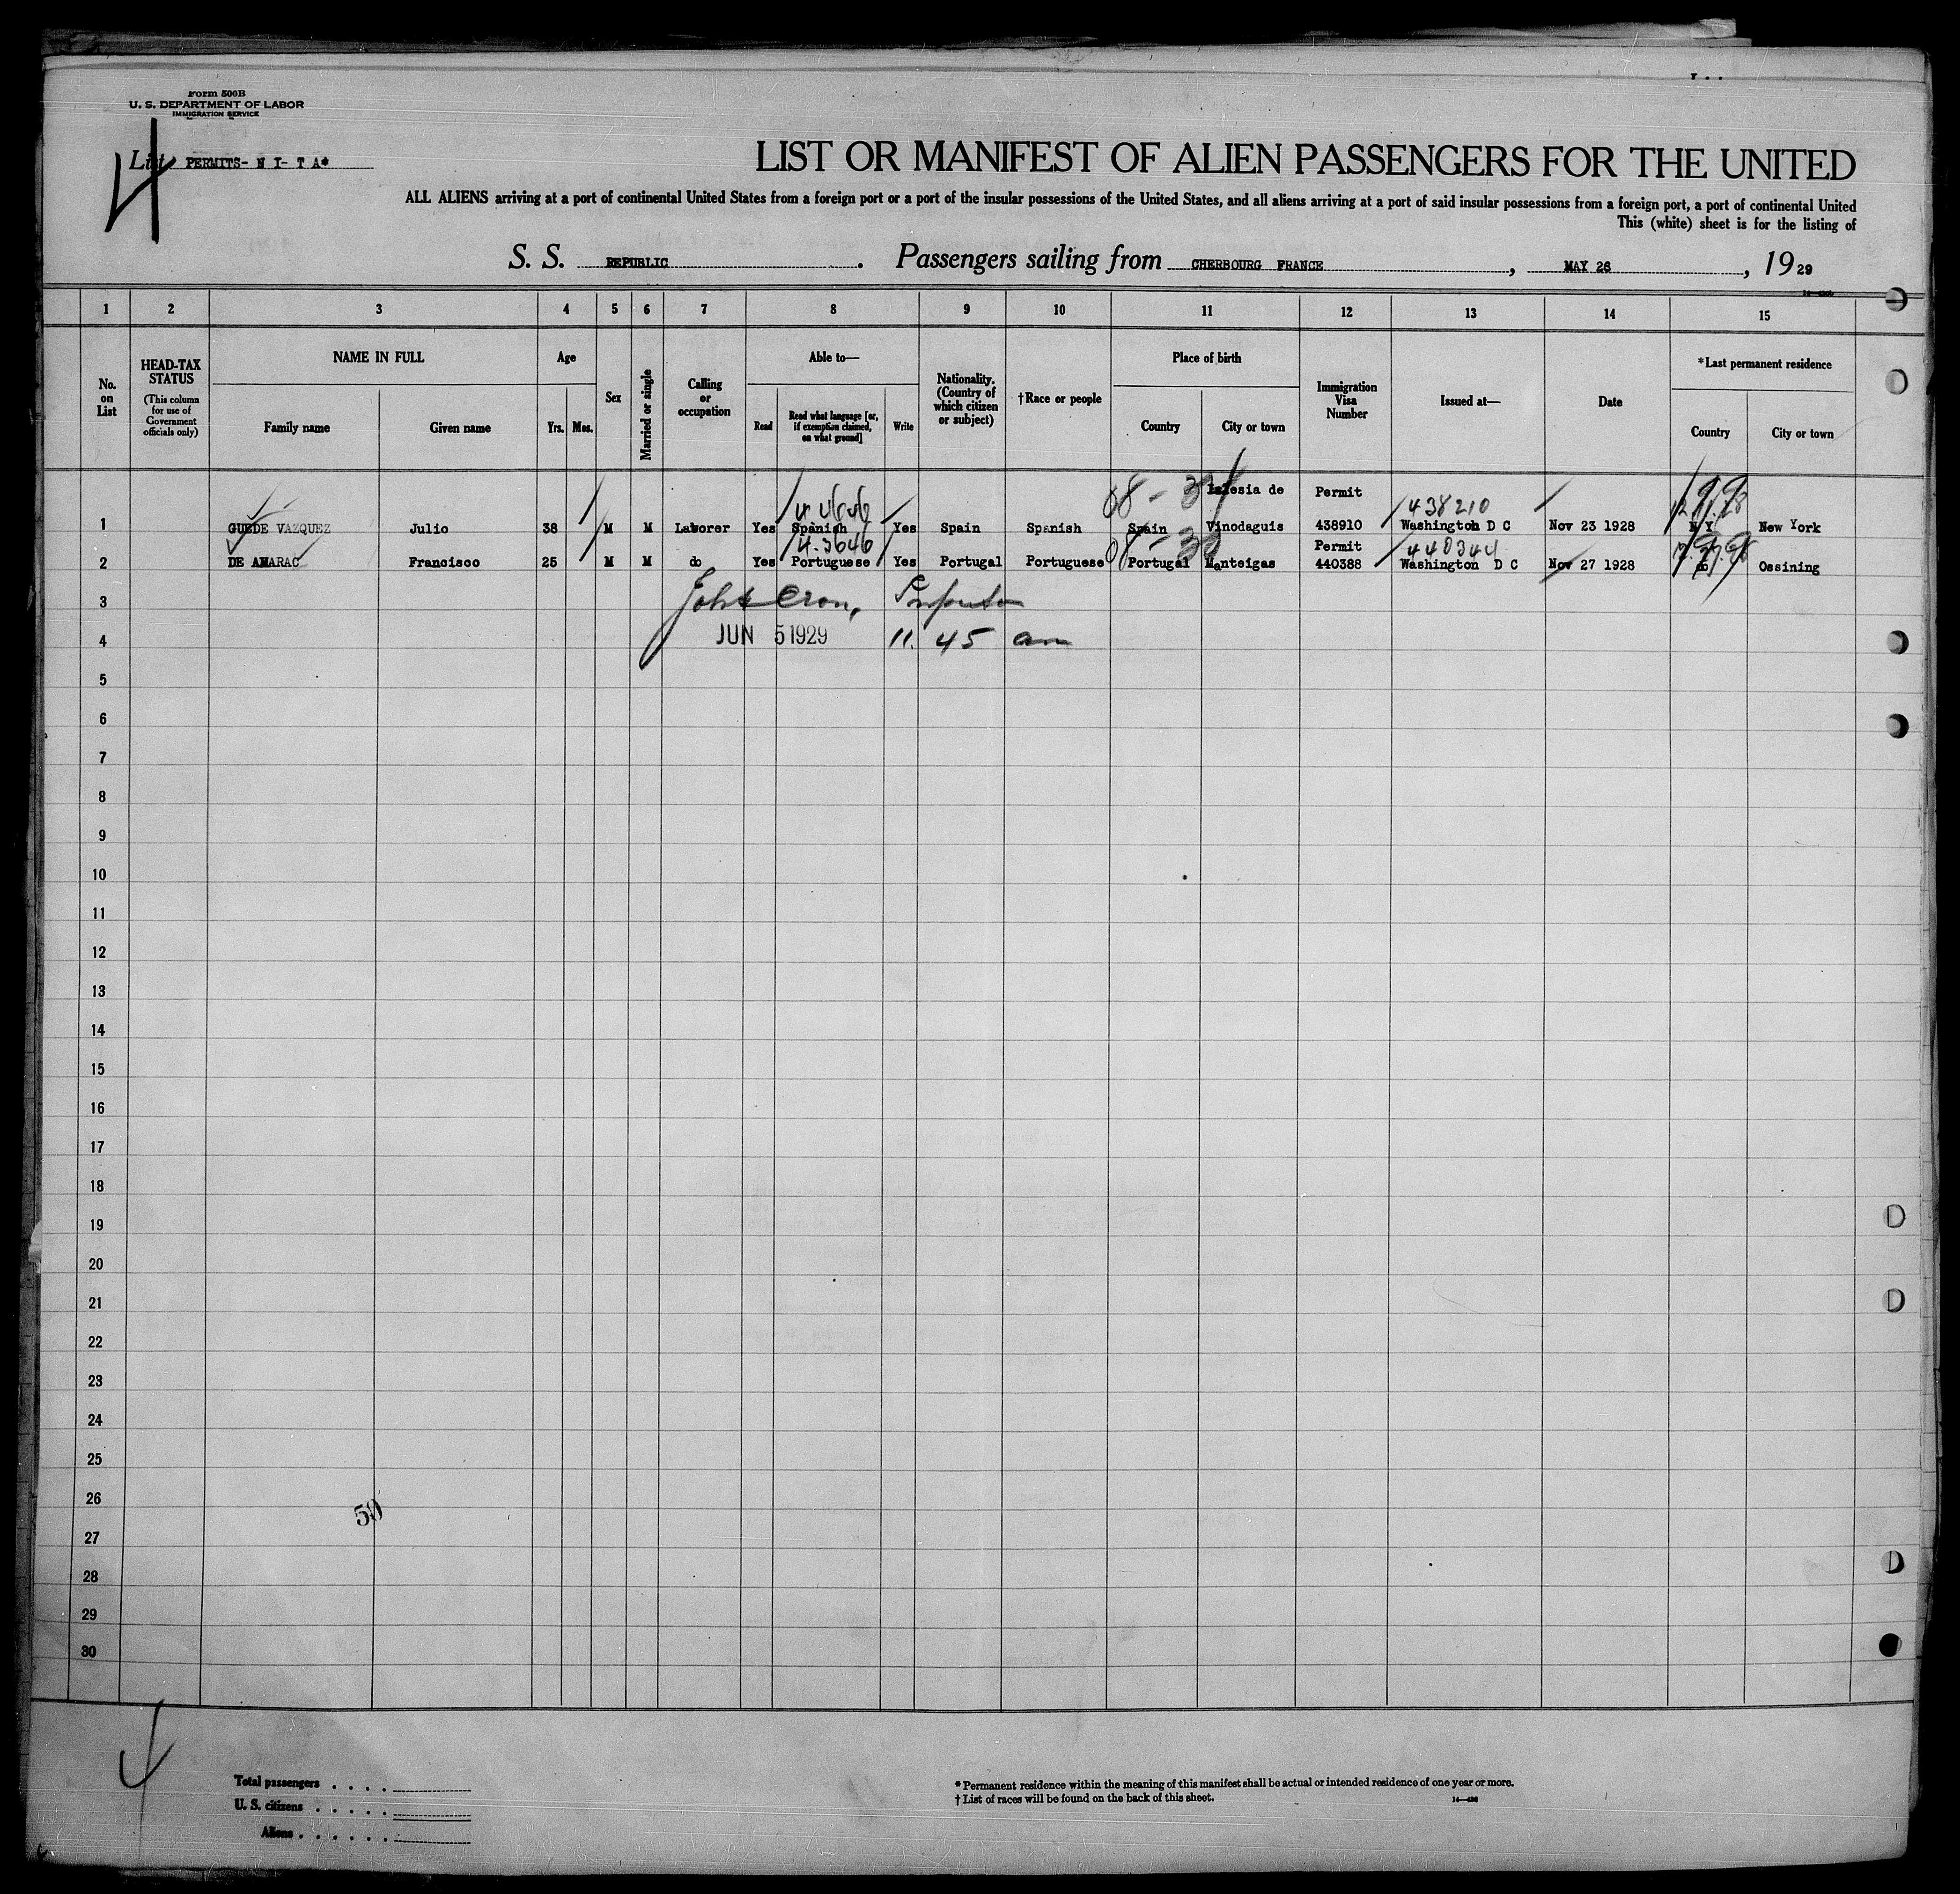 Form 500B
U. S. DEPARTMENT OF LABOR
IMMIGRATION SERVICE
4
List PERMITS- N I- T A*
LIST OR MANIFEST OF ALIEN PASSENGERS FOR THE UNITED
ALL ALIENS arriving at a port of continental United States from a foreign port or a port of the insular possessions of the United States, and all aliens arriving at a port of said insular possessions from a foreign port, a port of continental United
This (white) sheet is for the listing of
S. S. REPUBLIC. Passengers sailing from CHERBOURG FRANCE, MAY 26, 1929
1 2 3 4 5 6 7 8 9 10 11 12 13 14 15
No. on List
HEAD-TAX STATUS (This column for use of Government officials only)
NAME IN FULL
Family name
Given name
Age
Yrs. Mos.
Sex
Married or single
Calling or occupation
Able to—
Read
Read what language [or, if exemption claimed, on what ground]
Write
Nationality. (Country of which citizen or subject)
†Race or people
Place of birth
Country
City or town
Immigration Visa Number
Issued at—
Date
*Last permanent residence
Country
City or town
08 - Iglesia de Permit 438210
1 GUEDE VAZQUEZ Julio 38 M M Laborer Yes Spanish Yes Spain Spanish Spain Vinodaguis 438910 Washington D C Nov 23 1928 N Y New York
4-3646 Permit 440344
2 DE AMARAC Francisco 25 M M do Yes Portuguese Yes Portugal Portuguese Portugal Manteigas 440388 Washington D C Nov 27 1928 Ossining
3
4 JUN 5 1929 11. 45 am
5
6
7
8
9
10
11
12
13
14
15
16
17
18
19
20
21
22
23
24
25
26
50
27
28
29
30
Total passengers . . . .
U. S. citizens . . . . .
Aliens . . . . . .
* Permanent residence within the meaning of this manifest shall be actual or intended residence of one year or more.
† List of races will be found on the back of this sheet.